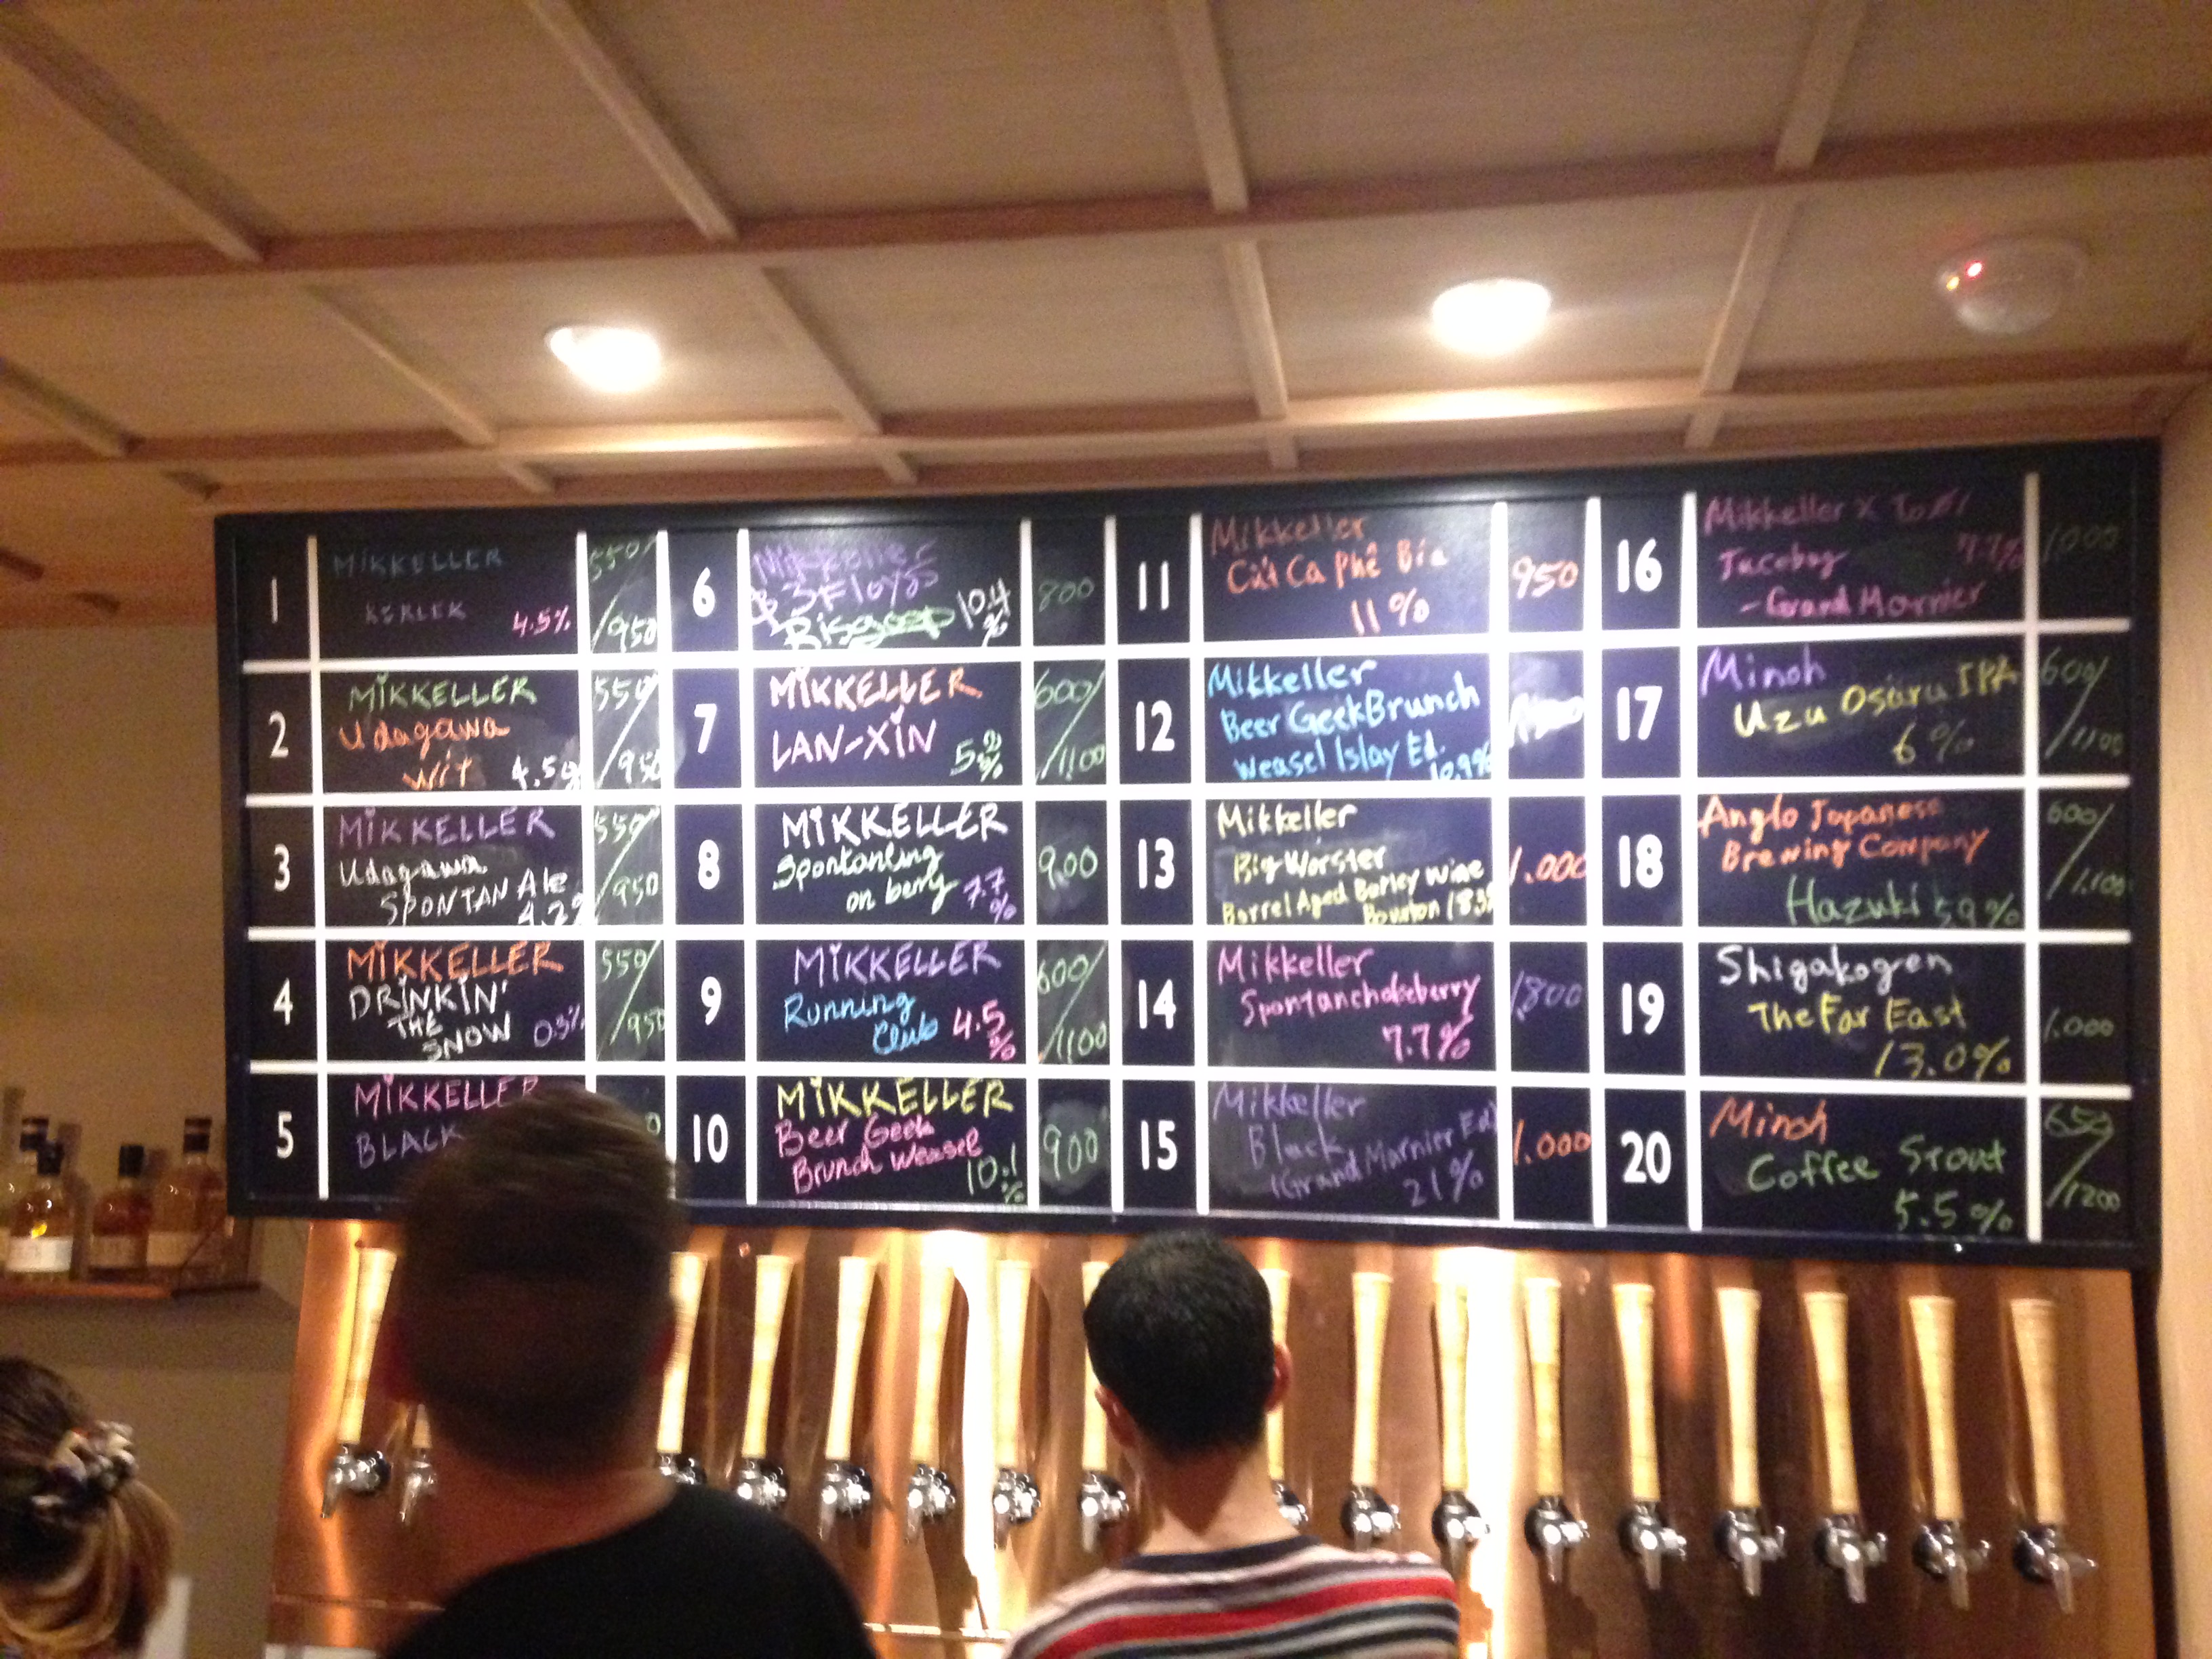 1
MIKKELLER
4.5%
550/
/950
2
MIKKELLER
Udagawa
Wit 4.5%
550/
/950
3
MIKKELLER
Udagawa
SPONTAN Ale
4.2%
550/
/950
4
MIKKELLER
DRINKIN'
THE
SNOW 0.3%
550/
/950
5
MIKKELLER
BLACK
6
Mikkeller
& 3 Floyds
10.4
%
800
7
MIKKELLER
LAN-XIN
600/
/1100
8
MIKKELLER
on berry 7.7
%
900
9
MIKKELLER
Running
Club 4.5
%
600/
/1100
10
MIKKELLER
Beer Geek
Brunch Weasel
10.1
%
900
11
Mikkeller
Cà Phê Bia
11%
950
12
Mikkeller
Beer Geek Brunch
Weasel Islay Ed.
10.9%
13
Mikkeller
Big Worster
Barrel Aged Barley Wine
Bourbon
1.000
14
Mikkeller
Spontanchokeberry
7.7%
800
15
Mikkeller
Black
(Grand Marnier Ed)
21%
1.000
16
Mikkeller X
7.7%
-Grand Marnier
1000
17
Minoh
Uzu Osaru IPA
6%
600/
/1100
18
Anglo Japanese
Brewing Company
Hazuki 5.9%
600/
/1.100
19
Shigakogen
The Far East
13.0%
1.000
20
Minoh
Coffee Stout
5.5%
650
/1200